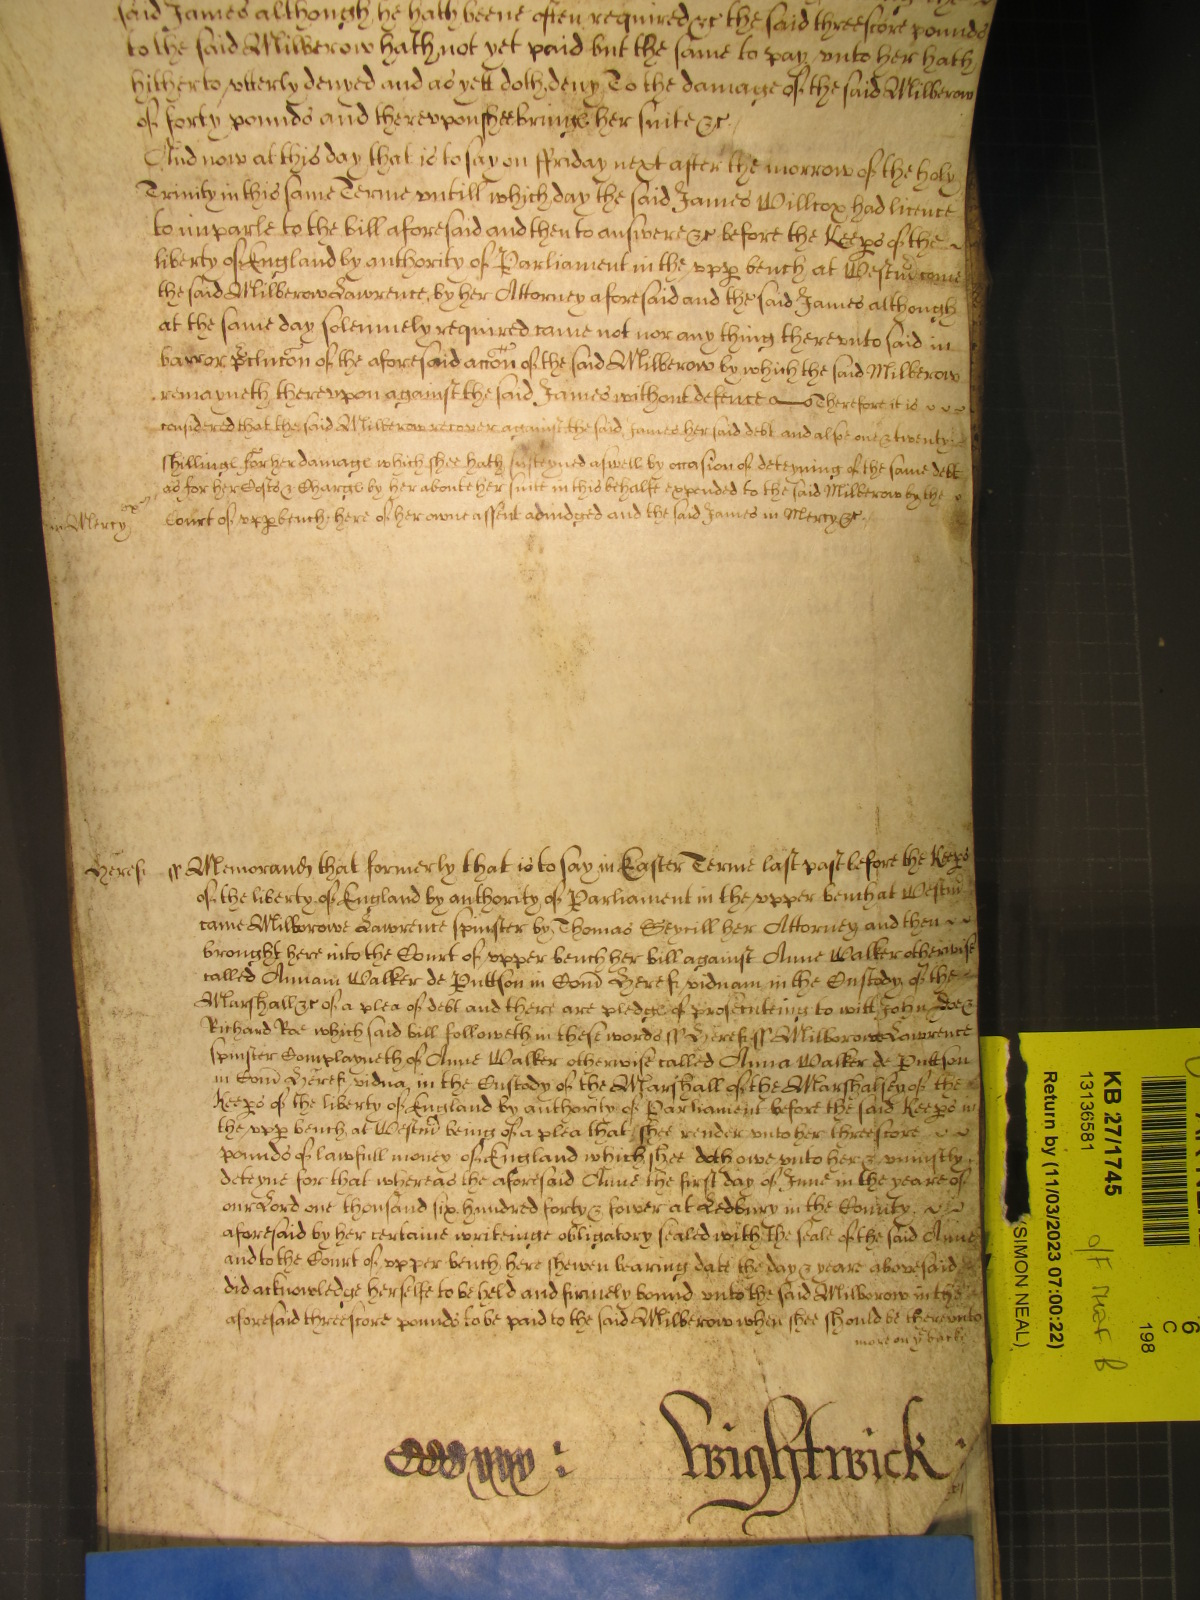 said James although he hath beene often required &c the said threescore pounds
to the said Milborow hath not yet paid but the same to pay vnto her hath
hitherto vtterly denyed and as yett doth deny To the damage of the said Milborow
of forty pounds and therevpon shee bringe her suite &c.
And now at this day that is to say on ffriday next after the morrow of the holy
Trinity in this same Terme vntill which day the said James Willcox had licence
to imparle to the bill aforesaid and then to answere &c before the Keeps of the
liberty of England by authority of Parliament in the vpp bench at Westm come
the said Milborow Lawrence by her Attorney aforesaid and the said James although
at the same day solemnely required came not nor any thing therevnto said in
barr or pclucon of the aforesaid accon of the said Milborow by which the said Milborow
remayneth therevpon against the said James without defence Therefore it is
considered that the said Milborow recover against the said James her said debt and alsoe one & twenty
shillinge for her damage which shee hath susteyned aswell by occasion of deteyning of the same debt
as for her Costs & Charge by her aboute her suite in this behalfe expended to the said Milborow by the
Court of vpp bench here of her owne assent adiudged and the said James in Mercy &c.
Mercy
Heref ss Memorand that formerly that is to say in Easter Terme last past before the Keeps
of the liberty of England by authority of Parliament in the vpper bench at Westm
came Milborowe Lawrence spinster by Thomas Seycill her Attorney and then
brought here into the Court of vpper bench her bill against Anne Walker otherwise
called Annam Walker de Puttson in Com Heref viduam in the Custody of the
Marshall &c of a plea of debt and there are pledge of prosecuteing to witt John Doe &
Richard Roe which said bill followeth in these words ss Heref ss Milborow Lawrence
spinster Complayneth of Anne Walker otherwise called Anna Walker de Puttson
in Com Heref vidua in the Custody of the Marshall of the Marshalsey of the
Keeps of the liberty of England by authority of Parliament before the said Keeps in
the vpp bench at Westm being of a plea that shee render vnto her threescore
pounds of lawfull money of England which shee doth owe vnto her & vniustly
deteyne for that whereas the aforesaid Anne the first day of June in the yeare of
our Lord one thousand six hundred forty & fower at Ledbury in the County
aforesaid by her certaine writeinge obligatory sealed with the seale of the said Anne
and to the Court of vpper bench here shewen bearing date the day & yeare abovesaid
did acknowledge herselfe to be held and firmely bound vnto the said Milborow in the
aforesaid threescore pounds to be paid to the said Milborow when shee should be therevnto
more on ye backe
Wightwick
KB 27/1745
13136581
Return by (11/03/2023 07:00:22)
(SIMON NEAL)
6
C
198